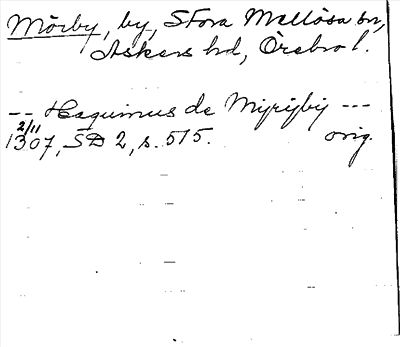 Mörby, by, Stora Mellösa sn,
Askers hd, Örebro l.
-- Haquinus de Myrijbij ---
2/11
1307, SD 2, s. 515. orig.